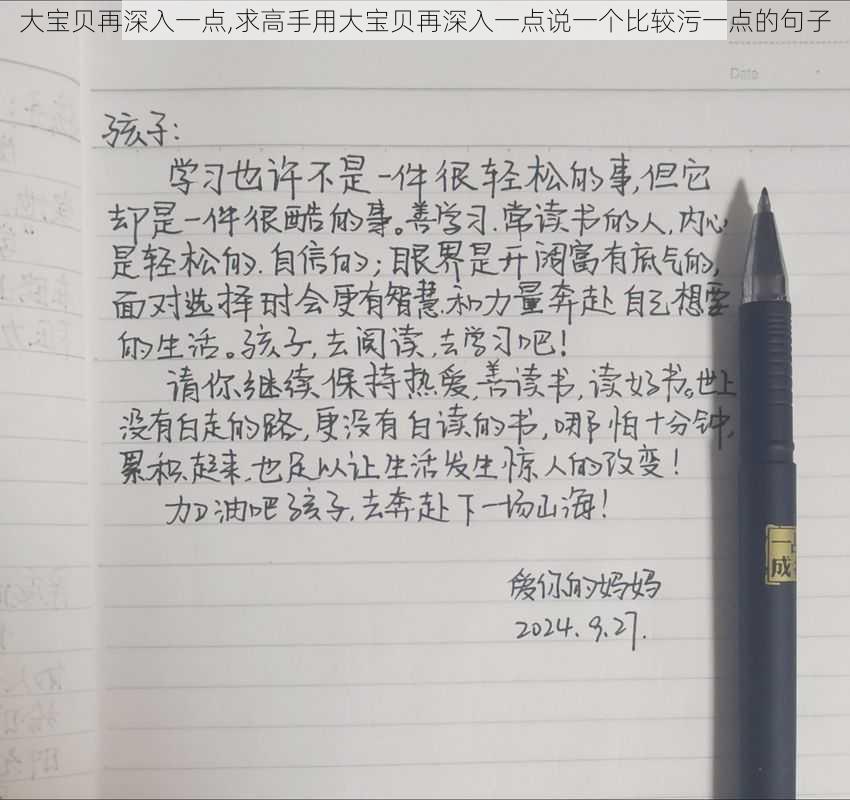 大宝贝再深入一点,求高手用大宝贝再深入一点说一个比较污一点的句子
Date
孩子:
学习也许不是一件很轻松的事,但它
却是一件很酷的事。善学习.常读书的人,内心
是轻松的.自信的;眼界是开阔富有底气的,
面对选择时会更有智慧.和力量奔赴自己想要
的生活。孩子,去阅读,去学习吧!
请你继续保持热爱,善读书,读好书。世上
没有白走的路,更没有白读的书,哪怕十分钟,
累积起来,也足以让生活发生惊人的改变!
加油吧孩子,去奔赴下一场山海!
爱你的妈妈
2024.9.27.
一
成